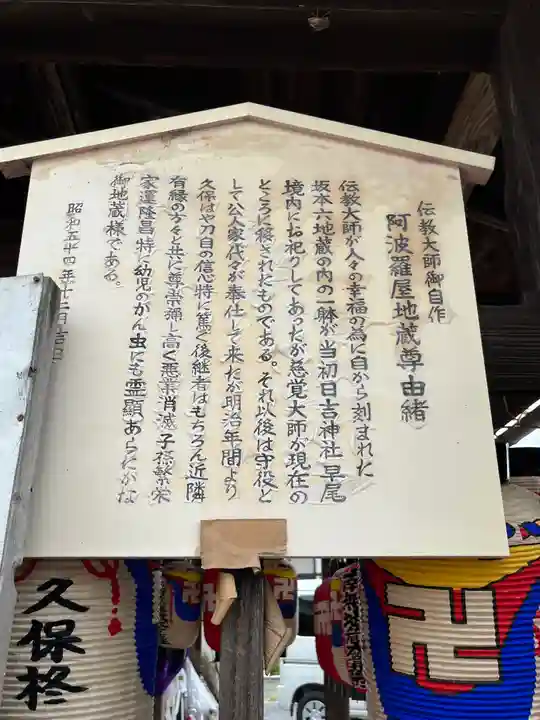 伝教大師御自作
阿波羅屋地蔵尊由緒
伝教大師が人々の幸福の為に自から刻まれた
坂本六地蔵の内の一躰が当初日吉神社早尾
境内にお祀りしてあったが慈覚大師が現在の
ところに移されたものである。それ以後は守役と
して公人家代々が奉仕して来たが明治年間より
久保はや刀自の信心特に篤く後継者はもちろん近隣
有縁の方々と共に尊崇深し高く悪業消滅子孫繁栄
家運隆昌特に幼児のがん虫にも霊顕あらたかな
御地蔵様である。
昭和五十四年十二月吉日
久保柊
卍
卍
卍